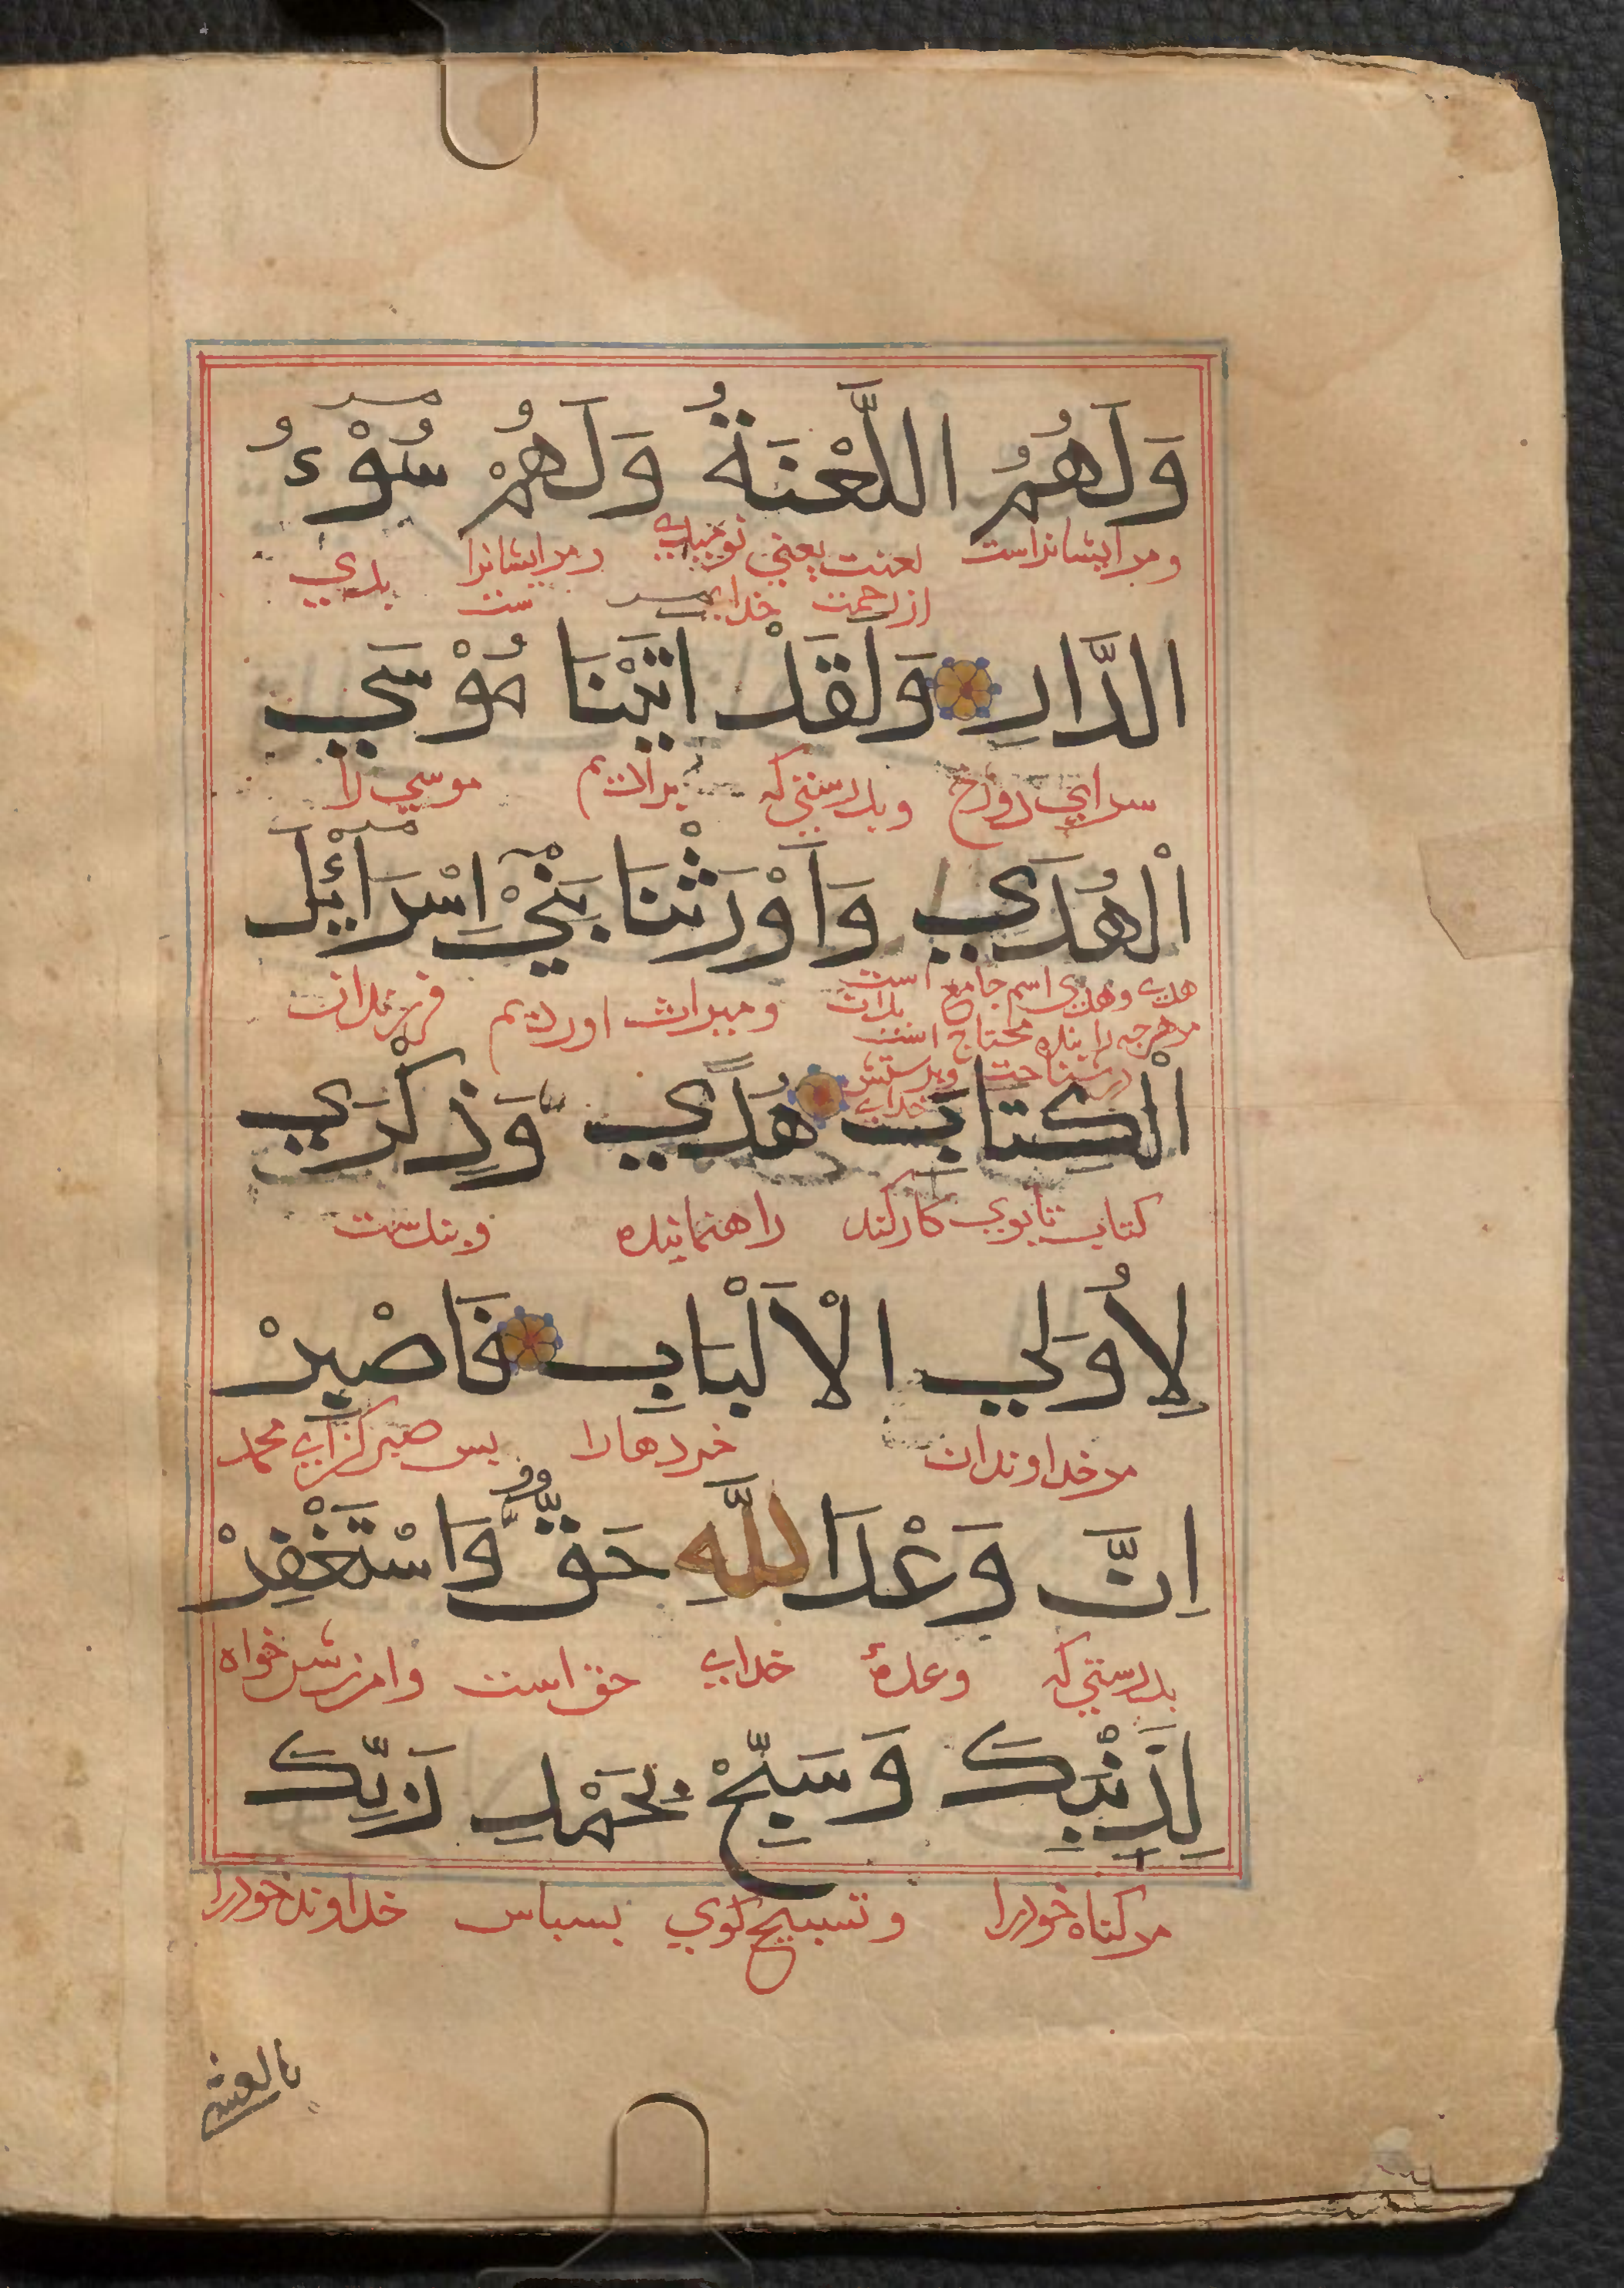 وَلَهُمُ اللَّعْنَةُ وَلَهُمْ سُوْءُ
ومرایشانراست لعنت یعنی نومیدی ومرایشانرا بدی
ازرحمت خدای ست
الدَّارِ وَلَقَدْ اٰتَيْنَا مُوْسَي
سرای دوزخ وبدرستی که موسی را
الْهُدَي وَاَوْرَثْنَا بَنِيْ اِسْرَائِيْلَ
هدی وهدی اسم جامع است ومیراث اوردیم فرزندان
مرهرچه را بنده محتاج است بدان
درشناخت وپرستش
خدای
الْكِتَابَ هُدًي وَذِكْرَي
کتاب تابوی کارکند راهنماینده وپندست
لِاُولِي الْاَلْبَابِ فَاصْبِرْ
مرخداوندان خردهارا پس صبرکن ای محمد
اِنَّ وَعْدَ اللَّهِ حَقٌّ وَّاسْتَغْفِرْ
بدرستی که وعدۀ خدای حق است وامرزش خواه
لِذَنْبِكَ وَسَبِّحْ بِحَمْدِ رَبِّكَ
مرکناه خودرا وتسبیح کوی بسپاس خداوند خودرا
بالعشي